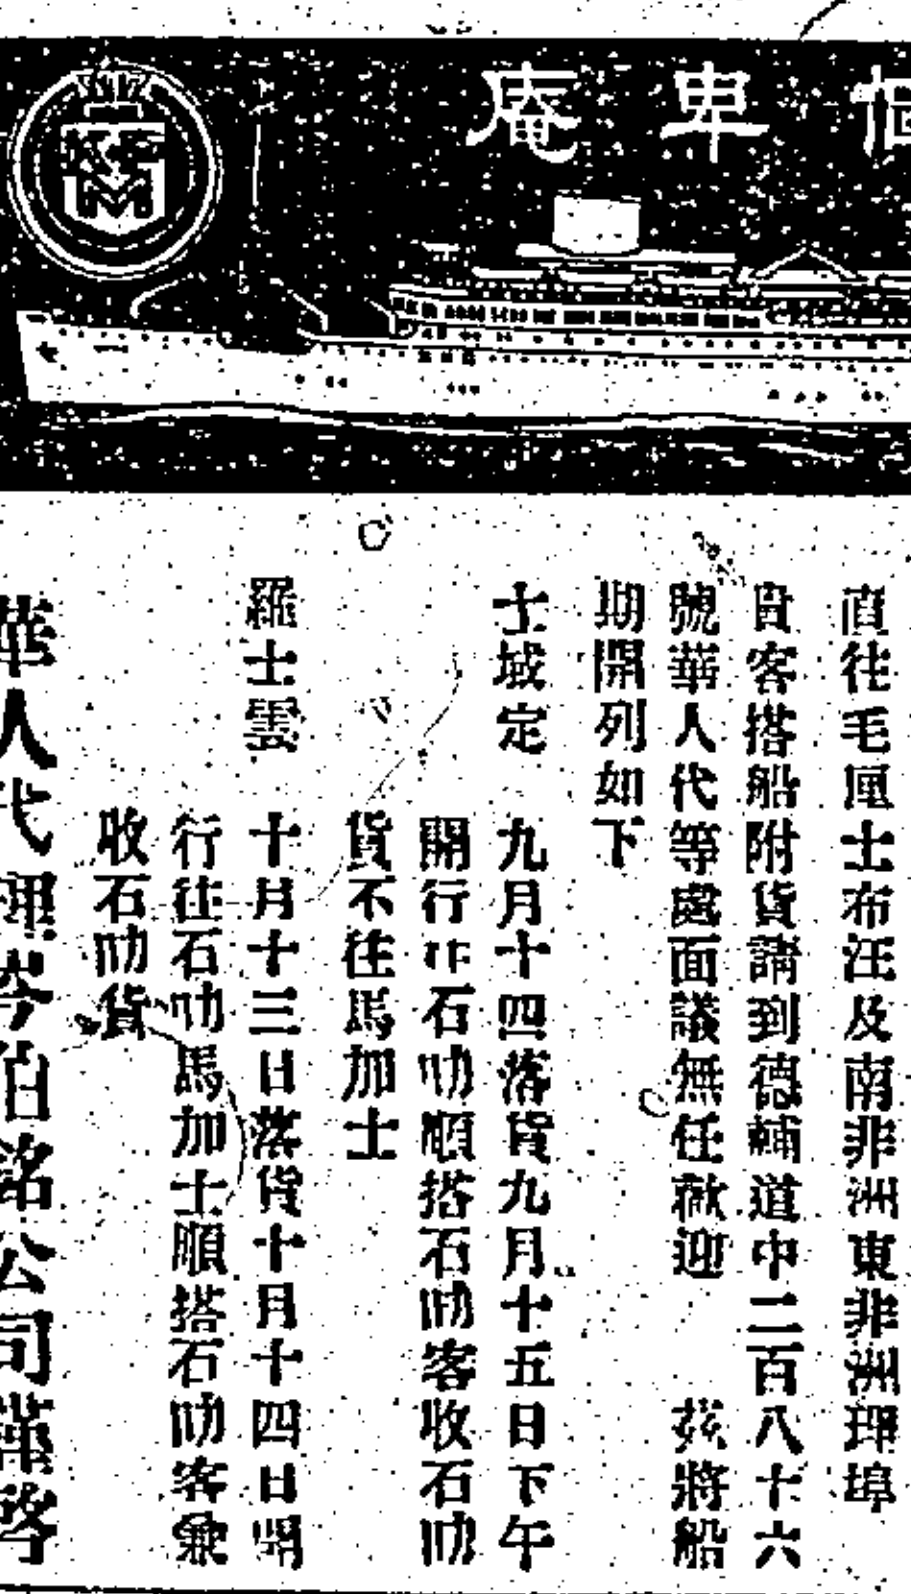 卑庵
直往毛厘士布汪及南非洲東非洲埠
貴客搭船附貨請到德輔道中二百八十六
號華人代等處面議無任歡迎 茲將船
期開列如下
士域定 九月十四落貨九月十五日下午
開行往石叻順搭石叻客收石叻
貨不往馬加士
羅士雲 十月十三日落貨十月十四日開
行往石叻馬加士順搭石叻客兼
收石叻貨
華人代理岑伯銘公司謹啓